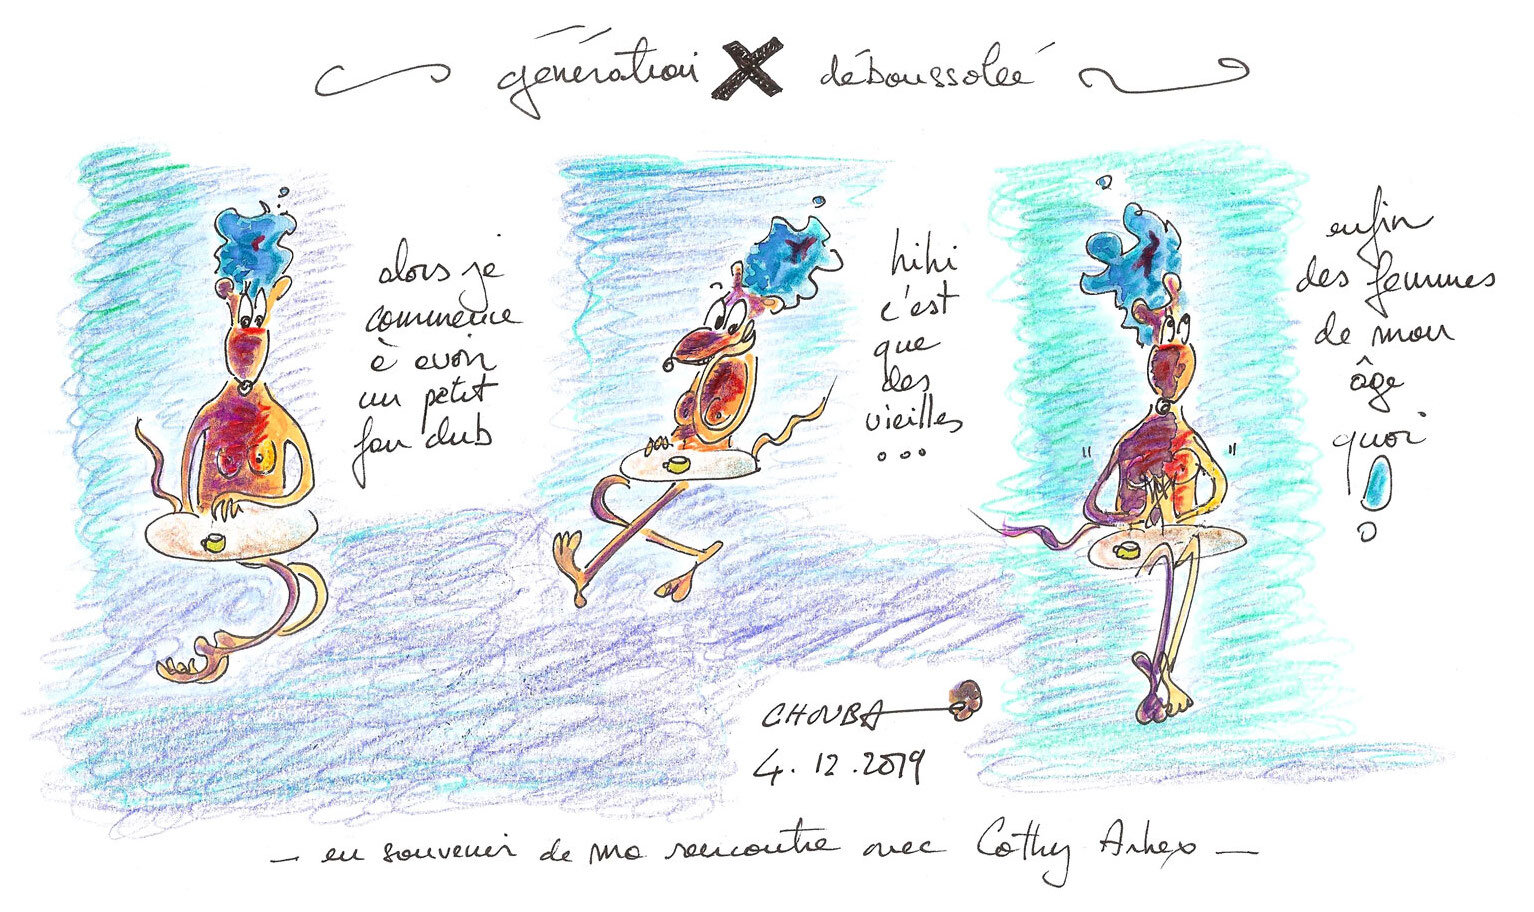 génération X déboussolée
alors je
commence
à avoir
un petit
fan club
hihi
c'est
que
des
vieilles
...
enfin
des femmes
de mon
âge
quoi
!
CHOUBA
4.12.2019
— en souvenir de ma rencontre avec Cathy